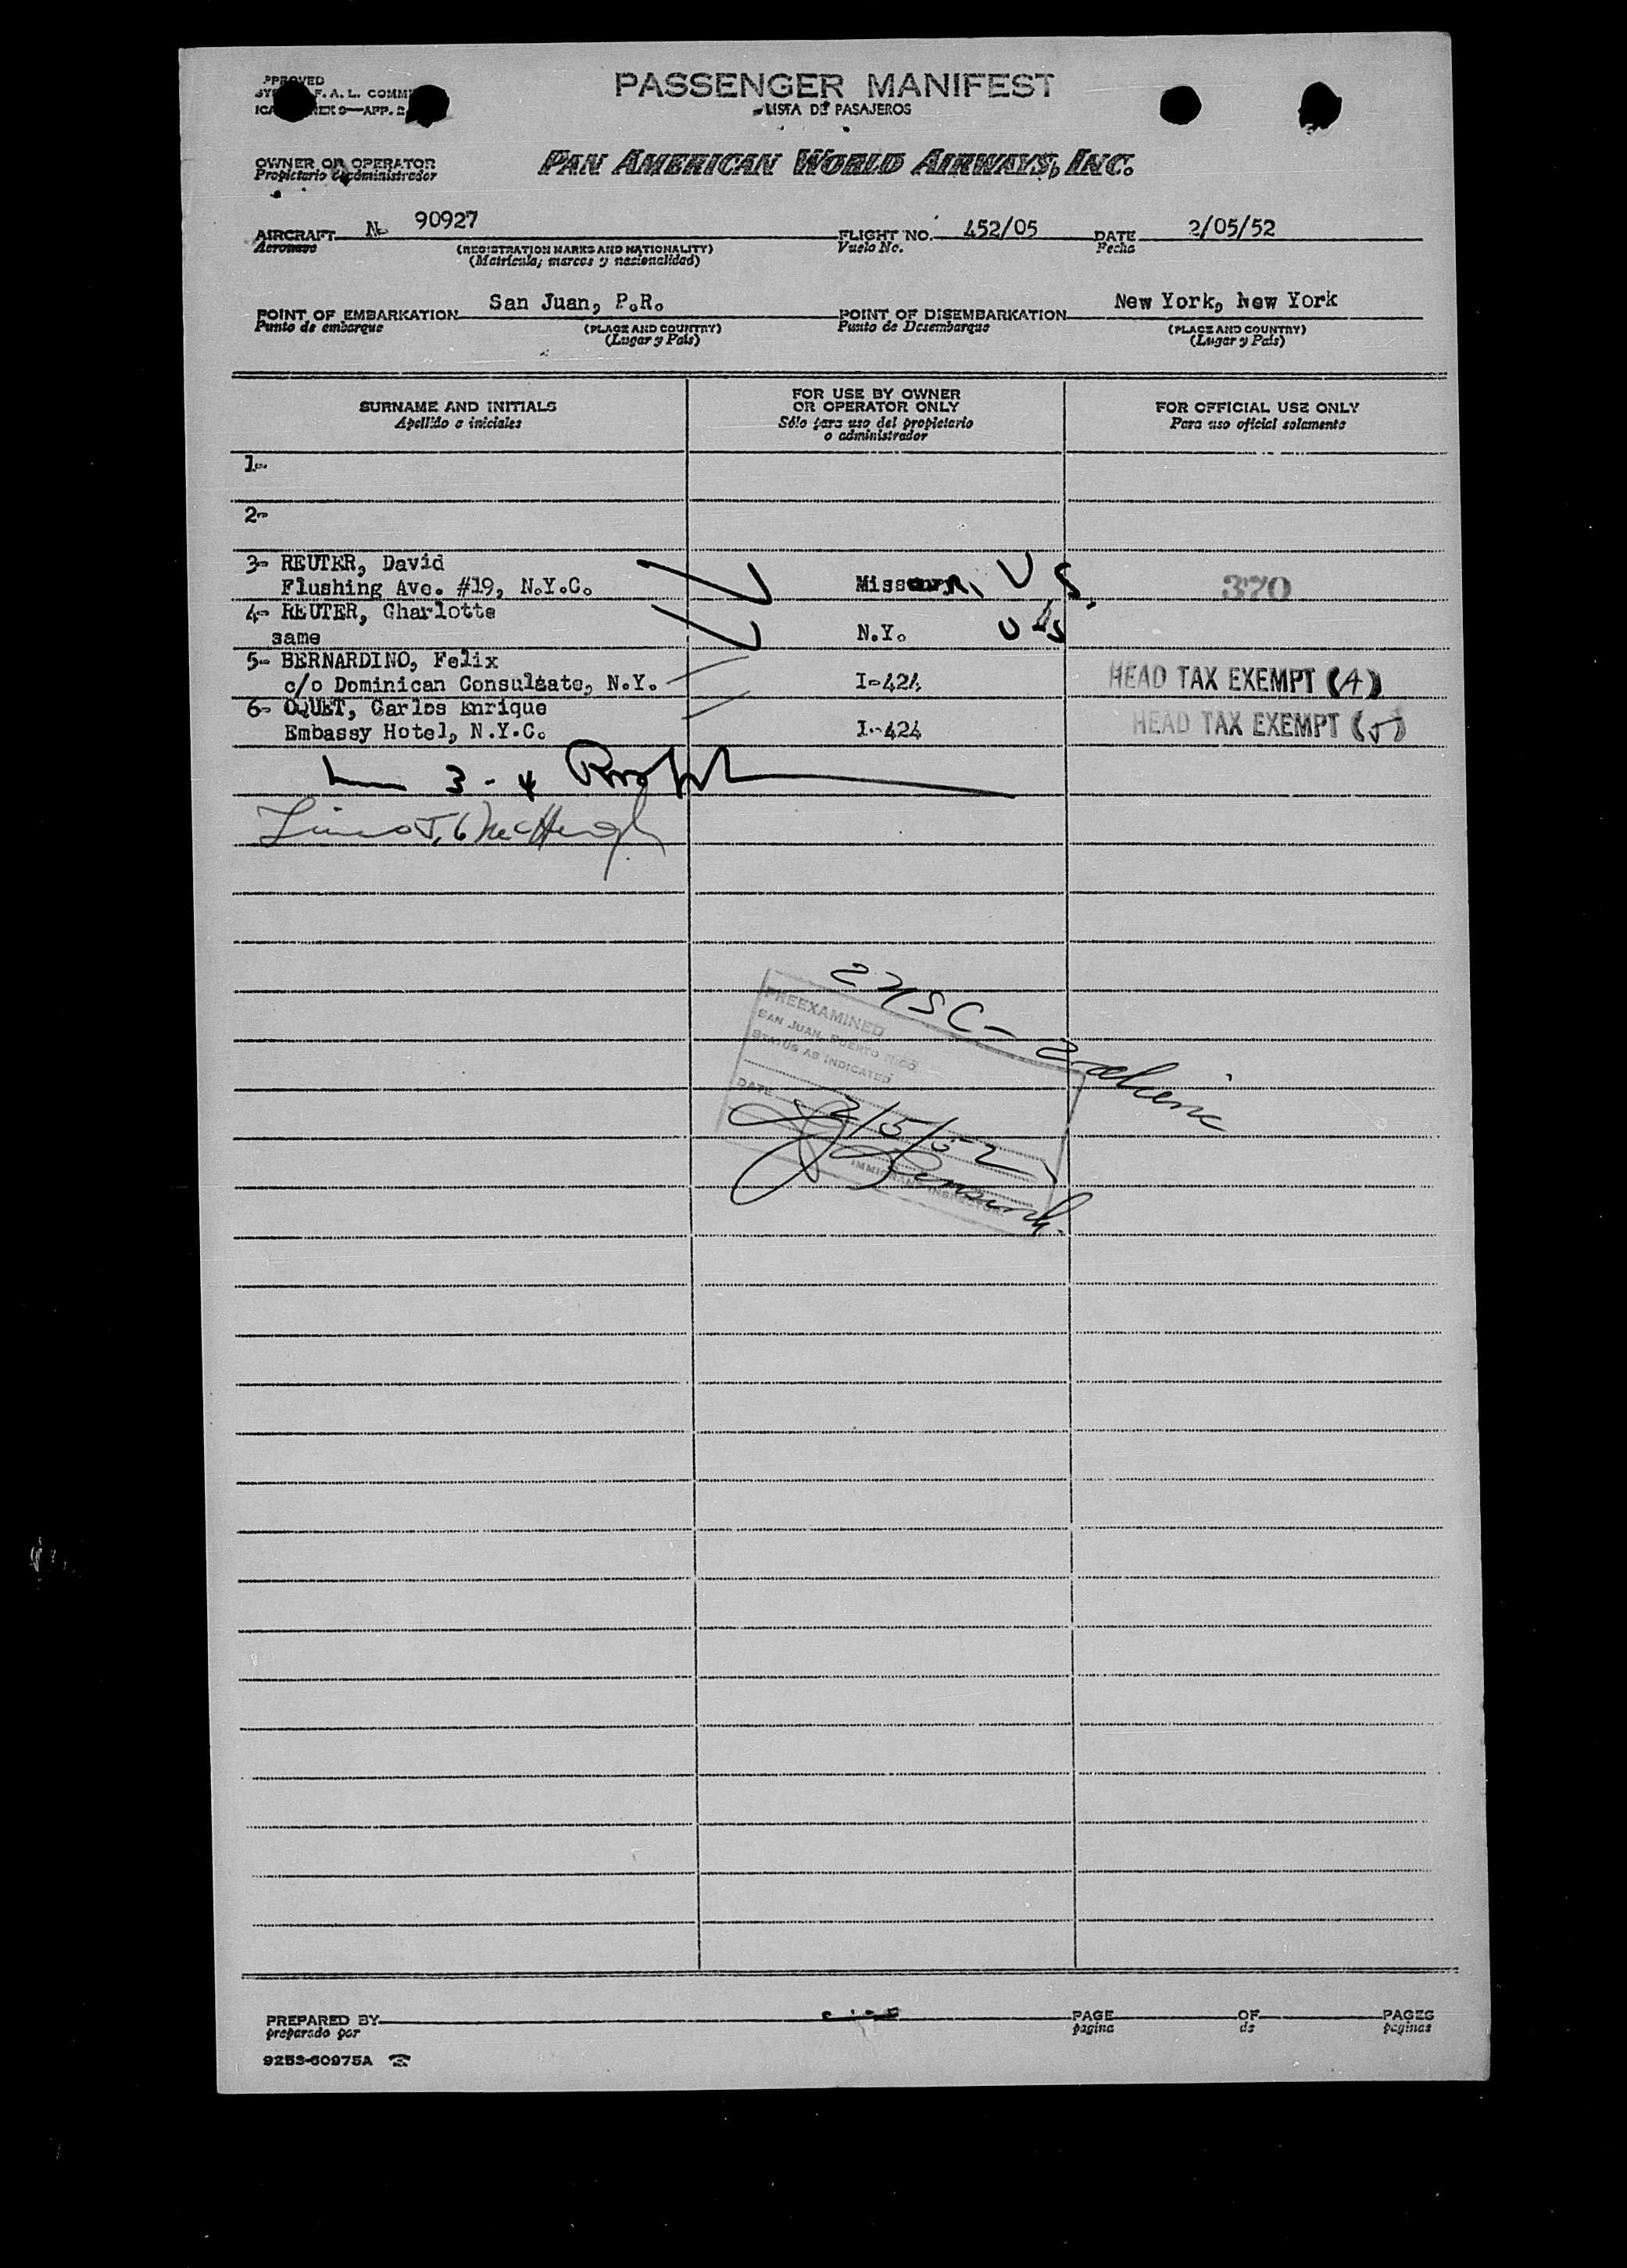 PPROVED
PASSENGER MANIFEST
F. A. L. COMM
LISTA DE PASAJEROS
9—APP. 2
OWNER OR OPERATOR
PAN AMERICAN WORLD AIRWAYS, INC.
Propietario o administrador
AIRCRAFT N 90927 FLIGHT NO. 452/05 DATE 2/05/52
Aeronave (REGISTRATION MARKS AND NATIONALITY) Vuelo No. Fecha
(Matricula; marcas y nacionalidad)
POINT OF EMBARKATION San Juan, P.R. POINT OF DISEMBARKATION New York, New York
Punto de embarque (PLACE AND COUNTRY) Punto de Desembarque (PLACE AND COUNTRY)
(Lugar y País) (Lugar y País)
SURNAME AND INITIALS
Apellido e iniciales
FOR USE BY OWNER
OR OPERATOR ONLY
Sólo para uso del propietario
o administrador
FOR OFFICIAL USE ONLY
Para uso oficial solamente
1-
2-
3- REUTER, David
Flushing Ave. #19, N.Y.C. Missouri U S. 370
4- REUTER, Charlotte
same N.Y. U S
5- BERNARDINO, Felix
c/o Dominican Consulsate, N.Y. I-424 HEAD TAX EXEMPT (4)
6- OQUET, Carlos Enrique
Embassy Hotel, N.Y.C. I-424 HEAD TAX EXEMPT (5)
3 - 4
2 USC - 2 aliens
PREEXAMINED
SAN JUAN, PUERTO RICO
STATUS AS INDICATED
DATE 2/5/52
IMMIGRANT INSPECTOR
PREPARED BY PAGE OF PAGES
preparado por pagina de paginas
9253-60975A